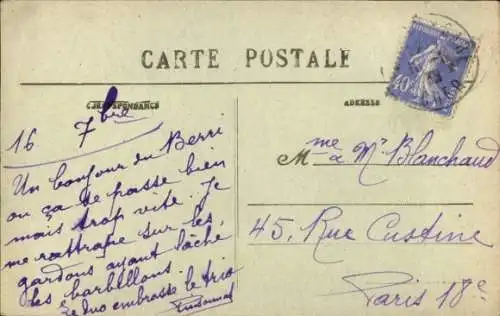 CARTE POSTALE
CORRESPONDANCE
ADRESSE
40c
CHER
16 7bre
Un bonjour du Berri
ou ça se passe bien
mais trop vite. Je
me rattrape sur les
gardons ayant lâché
les barbillons.
Le duo embrasse le trio
Mme & Mr Blanchaud
45, Rue Custine
Paris 18e